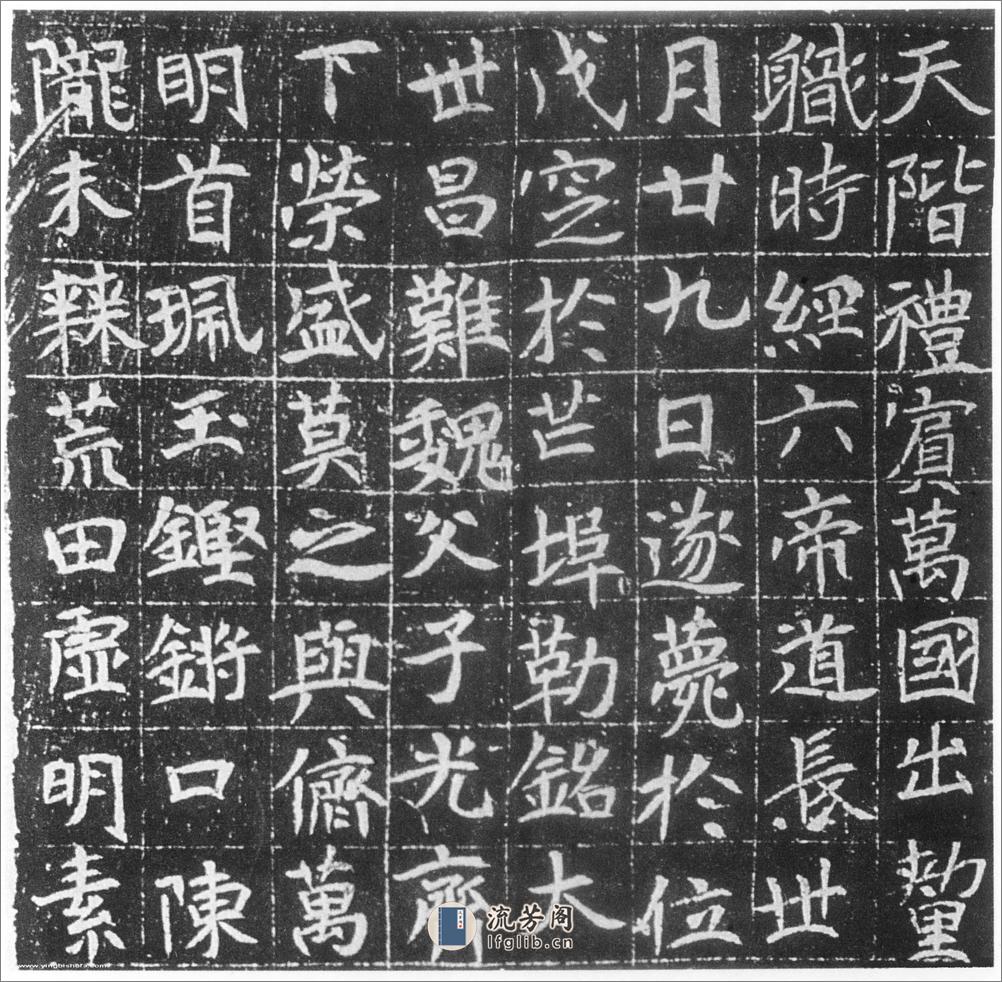 天階禮賓萬國出釐
職時經六帝道長世
月廿九日遂薨於位
戊窆於芒埠勒銘大
世昌難魏父子光齊
下榮盛莫之與儕萬
明首珮玉鏗鏘口陳
隴未棘荒田虛明素
流芳阁
lfglib.cn